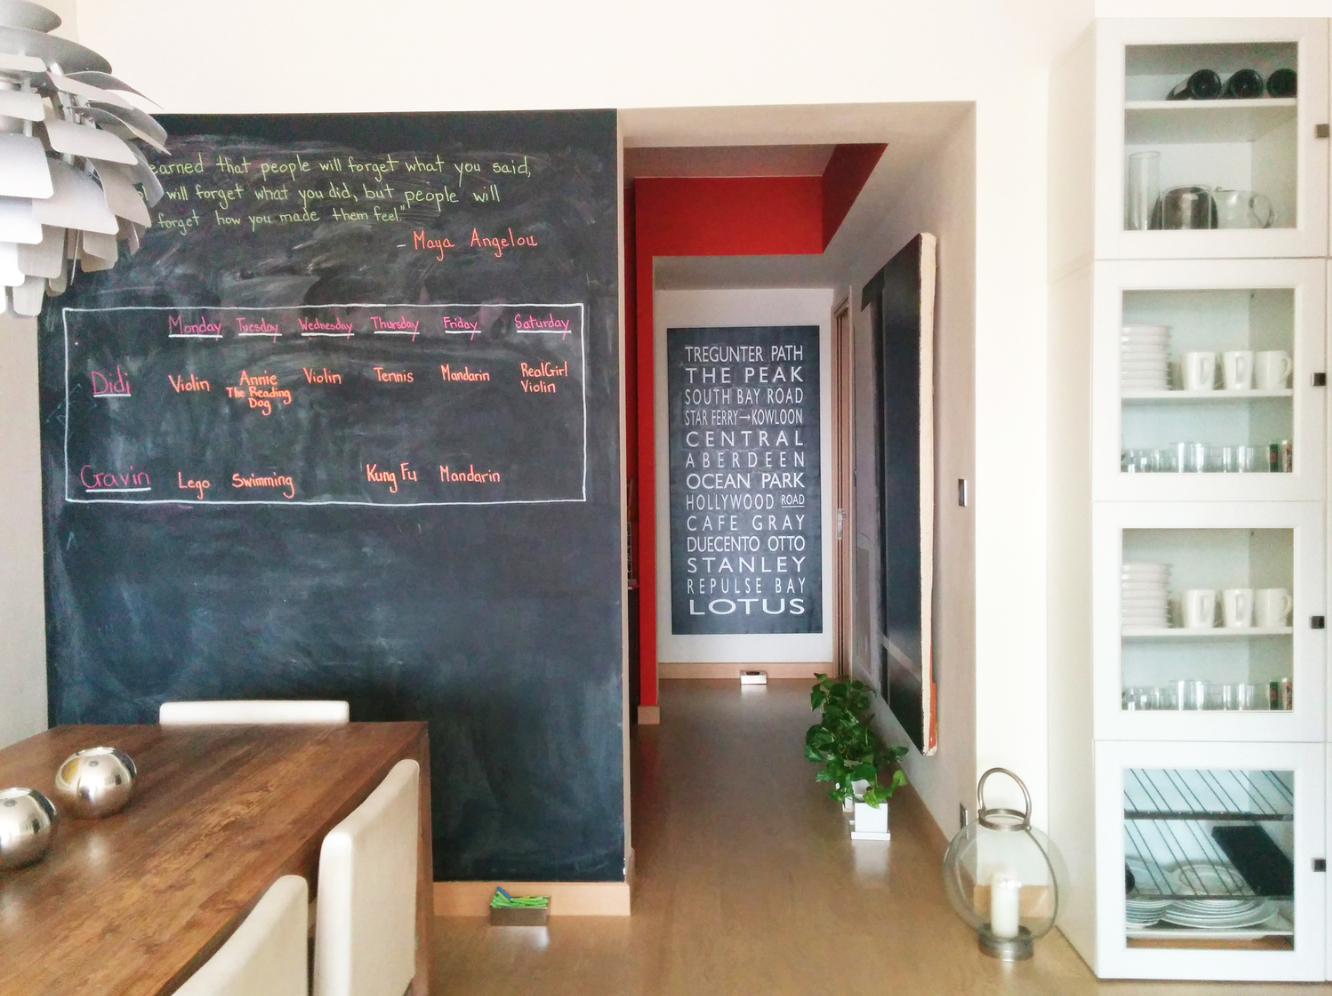 earned that people will forget what you said,
will forget what you did, but people will
forget how you made them feel"
- Maya Angelou
Monday Tuesday Wednesday Thursday Friday Saturday
Didi Violin Annie The Reading Dog Violin Tennis Mandarin RealGirl Violin
Gavin Lego Swimming Kung Fu Mandarin
TREGUNTER PATH
THE PEAK
SOUTH BAY ROAD
STAR FERRY→KOWLOON
CENTRAL
ABERDEEN
OCEAN PARK
HOLLYWOOD ROAD
CAFE GRAY
DUECENTO OTTO
STANLEY
REPULSE BAY
LOTUS